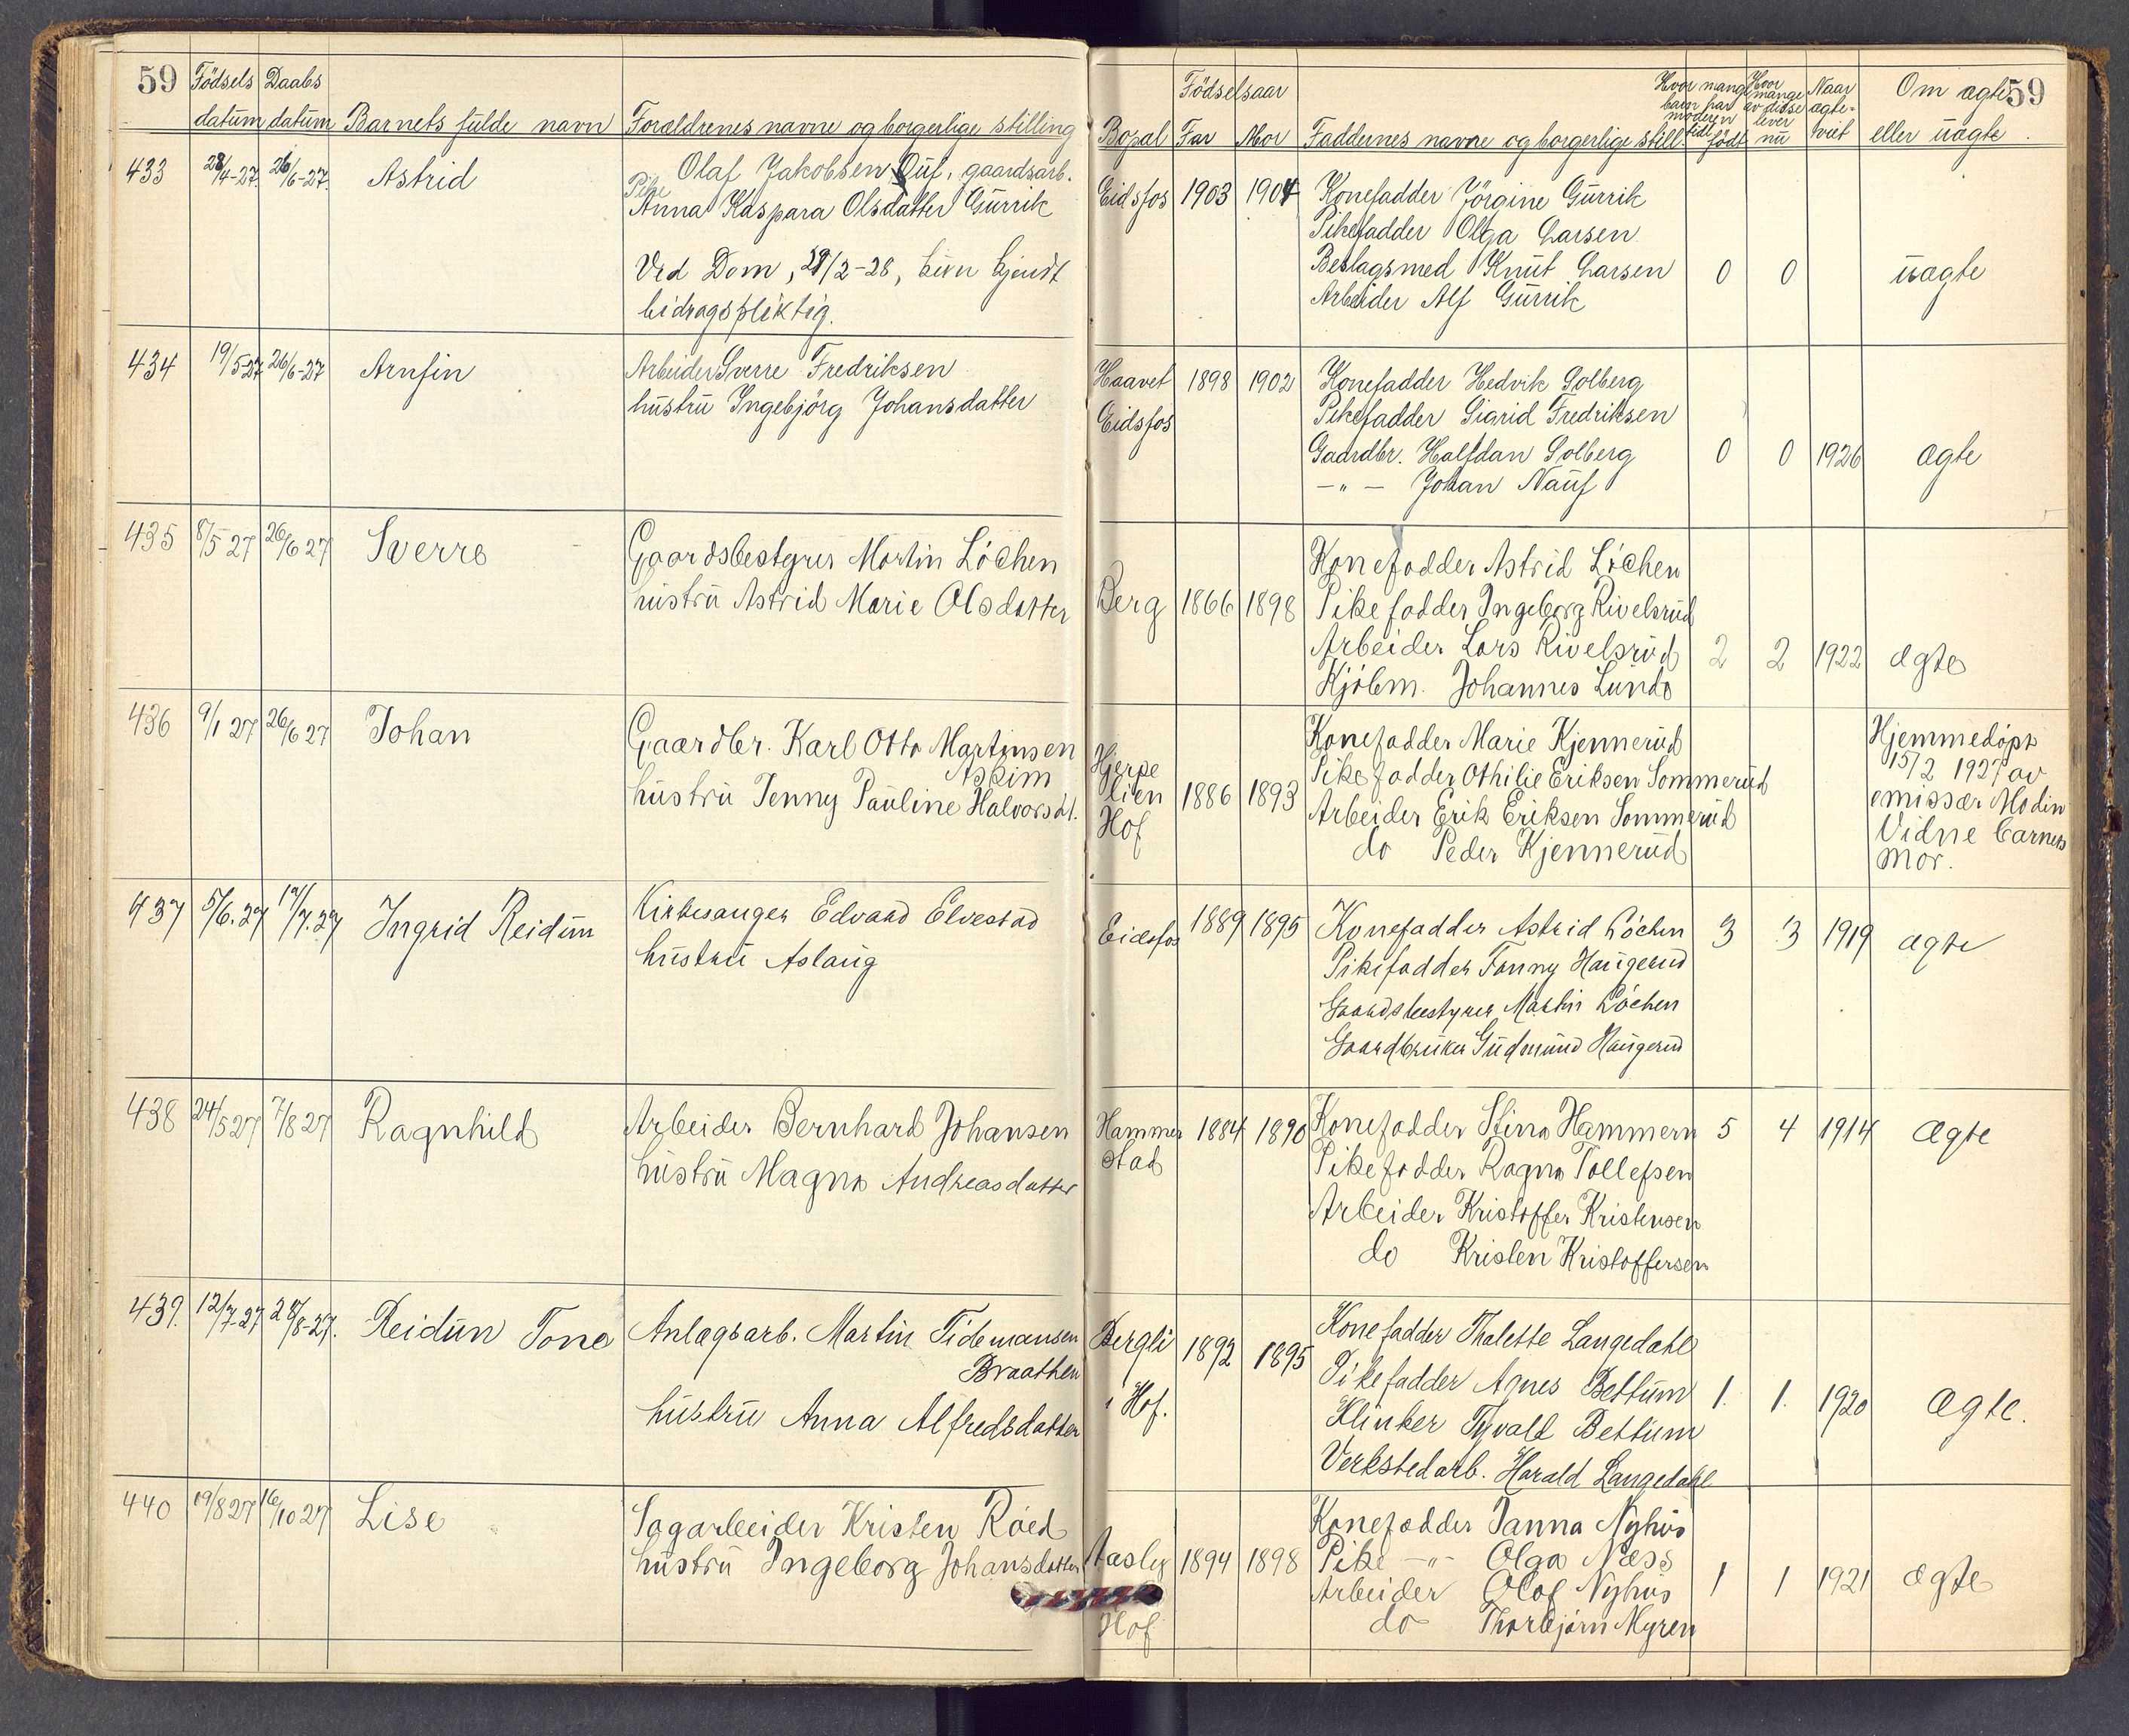 59 Födsels datum Daabs datum Barnets fulde navn Forældrenes navne og borgerlige stilling
Bopæl Födselsaar Far Mor Faddernes navne og borgerlige still. Hvor mange barn har moderen tidl. födt Hvor mange av disse lever nu Naar ægte-viet Om ægte eller uægte. 59
433 28/4-27. 26/6-27. Astrid
Olaf Jakobsen Ruf, gaardsarb.
Pike Anna Kaspara Olsdatter Gurrik
Ved Dom, 29/2-28, kun kjendt
bidragspliktig.
Eidsfos 1903 1904
Konefadder Jörgine Gurrik
Pikefadder Olga Larsen
Beslagsmed Knut Larsen 0 0 uægte
Arbeider Alf Gurrik
434 19/5-27 26/6-27 Arnfin
Arbeider Sverre Fredriksen
hustru Ingebjörg Johansdatter
Haavet
Eidsfos
1898 1902
Konefadder Hedvik Solberg
Pikefadder Sigrid Fredriksen
Gaardbr. Halfdan Solberg 0 0 1926 ægte
-"- Johan Nauf
435 8/5 27 26/6 27 Sverre
Gaardsbestyrer Martin Löchen
hustru Astrid Marie Olsdatter
Berg 1866 1898
Konefadder Astrid Löchen
Pikefadder Ingeborg Rivelsrud
Arbeider Lars Rivelsrud 2 2 1922 ægte
Kjöbm. Johannes Lunde
436 9/1 27 26/6 27 Johan
Gaardbr. Karl Otto Martinsen
Askim
hustru Jenny Pauline Halvorsdt.
Hjerpe
lien
Hof
1886 1893
Konefadder Marie Kjennerud
Pikefadder Othilie Eriksen Sommerud
Arbeider Erik Eriksen Sommerud
do Peder Kjennerud
Hjemmedöpt
15/2 1927 av
emissær Modin
Vidne barnets
mor.
437 5/6.27 17/7.27 Ingrid Reidun
Kirkesanger Edvard Elvestad
hustru Aslaug
Eidsfos 1889 1895
Konefadder Astrid Löchen 3 3 1919 ægte
Pikefadder Fanny Haugerud
Gaardsbestyrer Martin Löchen
Gaardbruker Gudmund Haugerud
438 24/5 27 7/8 27 Ragnhild
Arbeider Bernhard Johansen
hustru Magna Andreasdatter
Hammer
stad
1884 1890
Konefadder Stina Hammern 5 4 1914 Ægte
Pikefadder Ragna Tollefsen
Arbeider Kristoffer Kristensen
do Kristen Kristoffersen
439. 12/7-27 28/8-27. Reidun Tone
Anlægsarb. Martin Tidemansen
Braathen
hustru Anna Alfredsdatter
Bergli
i Hof.
1892 1895
Konefadder Thalette Langedahl
Pikefadder Agnes Bettum 1. 1. 1920 Ægte.
Klinker Tyvald Bettum
Verkstedarb. Harald Langedahl
440 19/8 27 16/10 27 Lise
Sagarbeider Kristen Röed
hustru Ingeborg Johansdatter
Aasly
Hof
1894 1898
Konefadder Janna Nyhus
Pike -"- Olga Næss
Arbeider Olaf Nyhus 1 1 1921 ægte
do Thorbjörn Myren